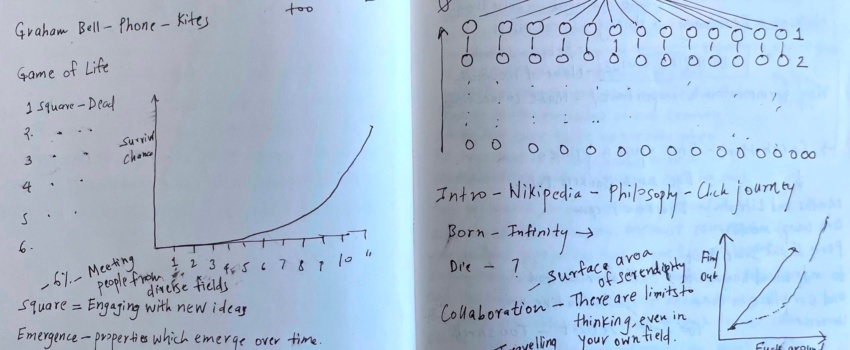 too
Graham Bell - Phone - Kites
Game of Life
1 Square - Dead
2. " "
3 " "
4 " "
5 " "
6.
Survival
Chance
1 2 3 4 5 6 7 8 9 10 11
6½ - Meeting
people from
diverse fields
Square = Engaging with new ideas
Emergence - properties which emerge over time.
1
2
Intro - Wikipedia - Philosophy - Click journey
Born - Infinity →
Die - ?
Surface area
of serendipity
Collaboration - There are limits to
thinking, even in
your own field.
Travelling
Find
Out
Fuck around